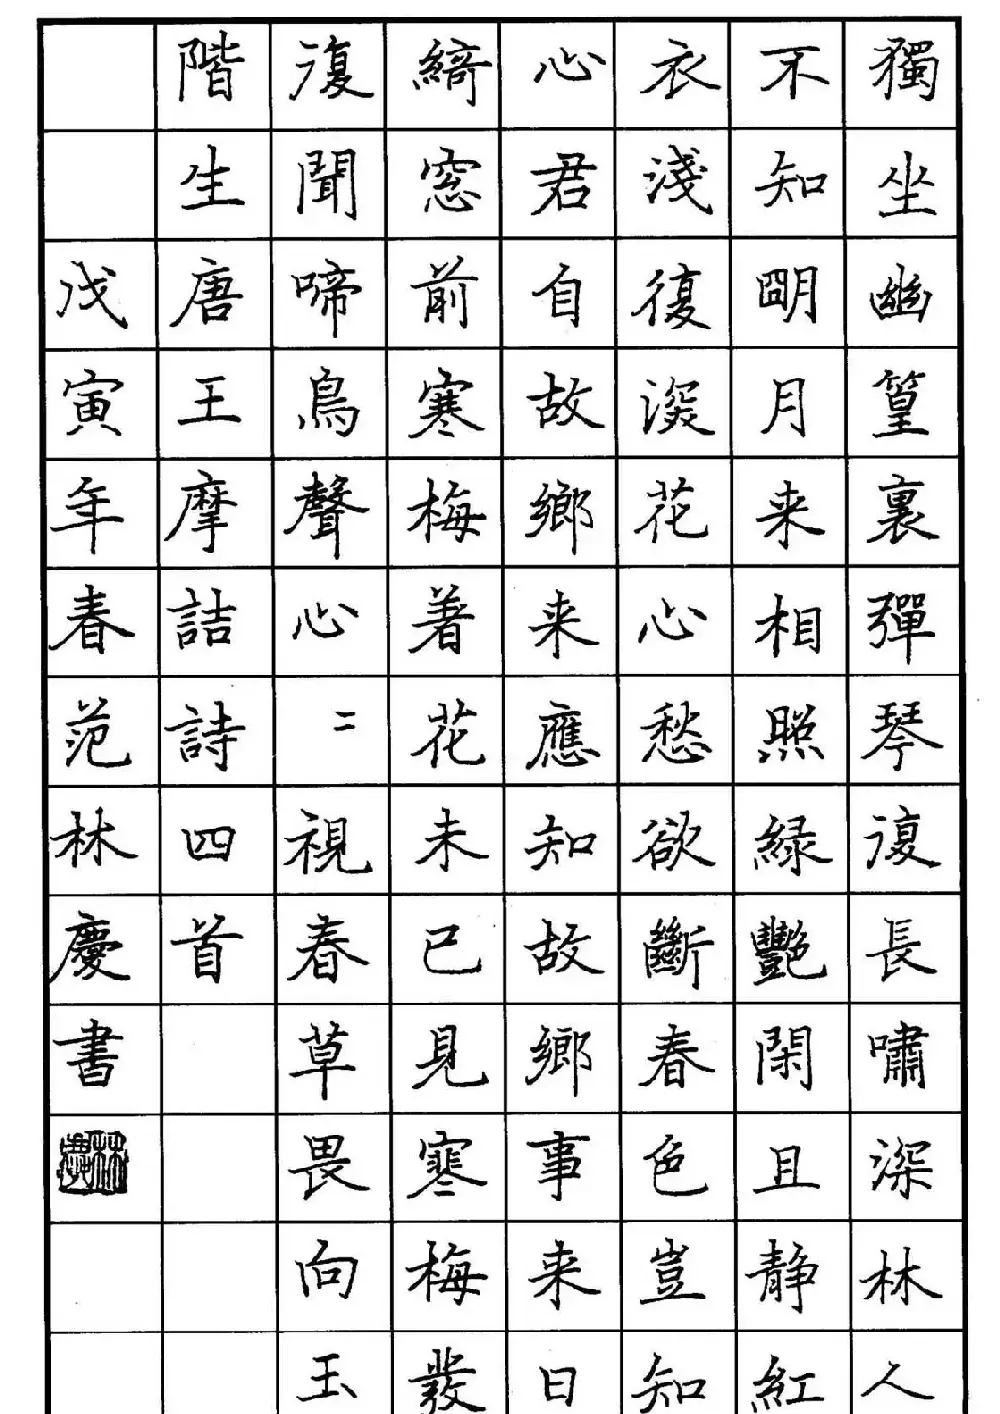 獨坐幽篁裏彈琴復長嘯深林人
不知朙月来相照緑艷閑且静紅
衣淺復深花心愁欲斷春色豈知
心君自故鄉来應知故鄉事来日
綺窓前寒梅著花未已見寒梅發
復聞啼鳥聲心〻視春草畏向玉
階生唐王摩詰詩四首
戊寅年春范林慶書
林慶